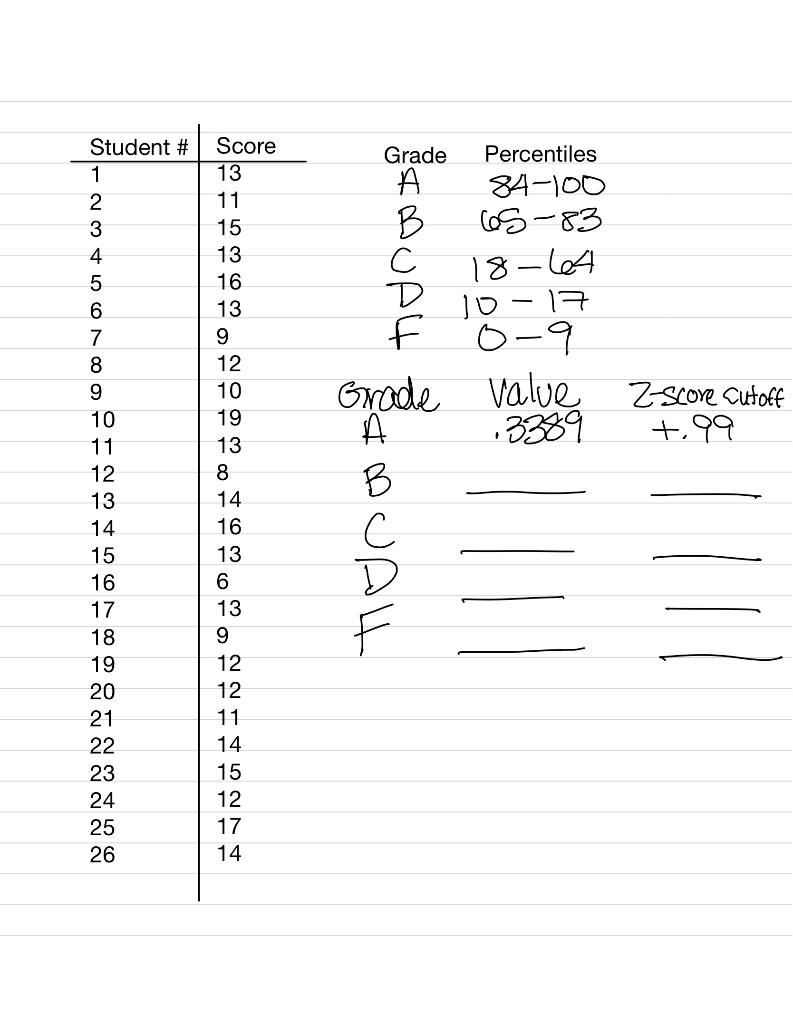 Student # Score
1 13
2 11
3 15
4 13
5 16
6 13
7 9
8 12
9 10
10 19
11 13
12 8
13 14
14 16
15 13
16 6
17 13
18 9
19 12
20 12
21 11
22 14
23 15
24 12
25 17
26 14
Grade Percentiles
A 84-100
B 65-83
C 18-64
D 10-17
F 0-9
Grade Value Z-score cutoff
A .3389 +.99
B
C
D
F